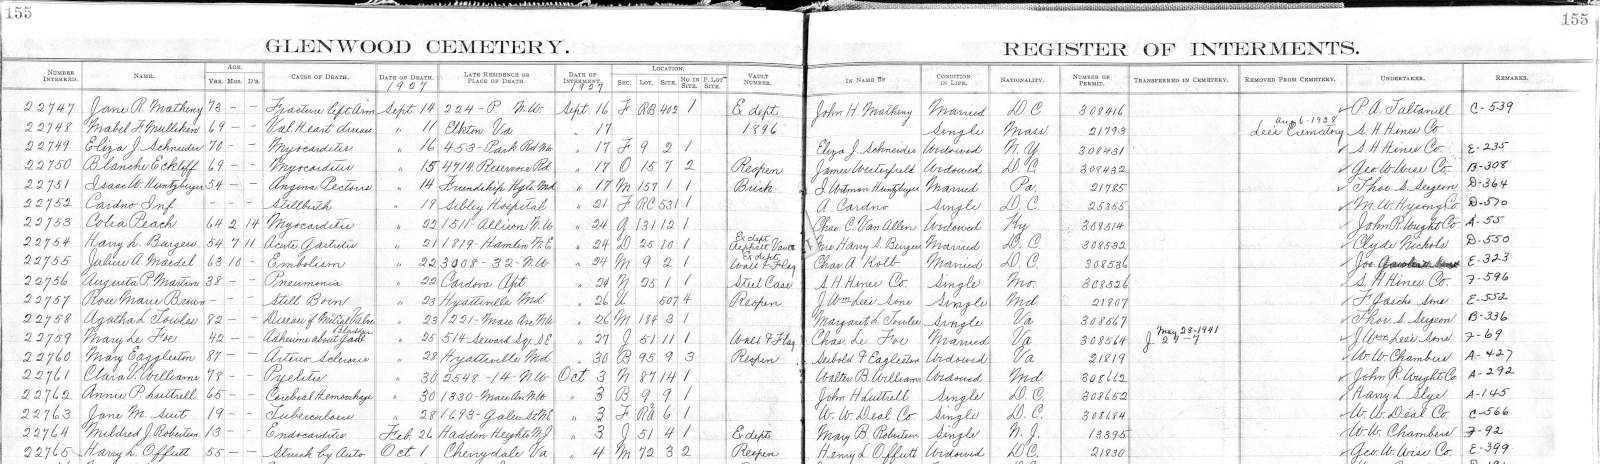 155
155
GLENWOOD CEMETERY.
REGISTER OF INTERMENTS.
NUMBER INTERRED. NAME. AGE. YRS. MOS. D'S. CAUSE OF DEATH. DATE OF DEATH. LATE RESIDENCE OR PLACE OF DEATH. DATE OF INTERMENT. LOCATION. SEC. LOT. SITE. NO. IN SITE P. LOT SITE. VAULT NUMBER. IN NAME OF CONDITION IN LIFE NATIONALITY. NUMBER OF PERMIT. TRANSFERRED IN CEMETERY. REMOVED FROM CEMETERY. UNDERTAKER. REMARKS.
1927 1927
22747 Jane R Matheny 73 - - Fracture left Arm Sept. 14 224 - P N.W. Sept. 16 F RB 402 1 E dept John H Matheny Married D.C. 308416 P. A. Taltavull C-539
22748 Mabel F Mulliken 69 - - Val. Heart disease " 11 Elkton Va " 17 1896 Single Mass 21793 Aug 6-1928 Lees Crematory S. H Hines Co
22749 Eliza J Schneider 70 - - Myocarditis " 16 453 - Park Rd NW " 17 F 9 2 1 Eliza J. Schneider Widowed N.Y. 308431 S. H Hines Co E-235
22750 Blanche Eckloff 69 - - Myocarditis " 15 4714 Reservoir Rd " 17 O 15 7 2 Reopen James Westerfield Widowed D.C. 308432 Geo W. Wise Co. B-308
22751 Isaac W. Huntzberger 54 - - Angina Pectoris " 14 Friendship Hgts Md " 17 M 157 1 1 Brick J. Witman Huntzberger Married Pa. 21785 Thos S. Sergeon D-364
22752 Cardno Inf Stillbirth " 19 Sibley Hospital " 21 F RC 531 1 A Cardno Single D.C. 25355 M. W. Hysong Co D-570
22753 Celia Peach 64 2 14 Myocarditis " 22 1511 - Allison N.W. " 24 G 131 12 1 Chas. C. Van Allen Widowed Ky 308514 John R. Wright Co A-55
22754 Harry L Burgess 54 7 11 Acute Gastritis " 21 1819 - Hamlin N.E " 24 D 25 10 1 Ex dept Asphalt Vault Mrs Harry S. Burgess Married D.C. 308532 Clyde Nichols D-550
22755 Julius A Maedel 63 10 - Embolism " 22 3008 - 32 - N.W " 24 M 9 2 1 Ex dept Wall & Flag Chas A Kolb Married D.C. 308536 Jos E-323
22756 Augusta P. Martin 38 - - Pneumonia " 22 Cordova Apt " 24 N 25 1 1 Steel Case S. H Hines Co Single Mo. 308526 S. H Hines Co 7-596
22757 Rose Marie Brown - - - Still Born " 23 Hyattsville Md " 26 U 507 4 Reopen J. Wm Lee's Sons Single Md 21807 F Gasch's Sons E-552
22758 Agatha L Towles 82 - - Disease of Mitral Valve " 23 1221 - Mass Ave NW " 26 M 184 3 1 Margaret L Towles Single Va 308567 Thos S. Sergeon B-336
22759 Mary Le Foe 42 - - about Gall Bladder " 25 514 Seward Sq. S.E " 27 J 51 11 1 Wall & Flag Chas. Le Foe Married Va 308564 May 28-1941 J 27-7 J. Wm Lee's Sons 7-69
22760 Mary Eaggleston 87 - - Arterio Sclerosis " 28 Hyattsville Md " 30 B 95 9 3 Reopen Seibold F Eagleston Widowed Va 21819 W. W. Chambers A-427
22761 Clara V. Williams 78 - - Pyelitis " 30 2548 - 14 - N.W Oct 3 N 87 14 1 Walter B. William Widowed Md 308662 John R. Wright Co A-292
22762 Annie P. Luttrell 65 - - Cerebral Hemorrhage " 30 1330 - Mass Av. N.W " 3 B 9 9 1 John H Luttrell Single D.C. 308652 Harry L. Slye A-145
22763 Jane M. Suit 19 - - Tuberculosis " 28 1693 - Gales St N.E " 3 F RA 6 1 W. W. Deal Co Single D.C. 308684 W. W. Deal Co C-566
22764 Mildred J. Robertson 13 - - Endocarditis Feb. 26 Haddon Heights N.J " 3 J 51 4 1 E dept Mary B. Robertson Single N.J. 13395 W. W. Chambers 7-92
22765 Harry L. Offutt 55 - - Struck by Auto Oct 1 Cherrydale Va " 4 M 72 3 2 Reopen Henry L Offutt Widowed D.C. 21830 Geo. W. Wise Co. E-399